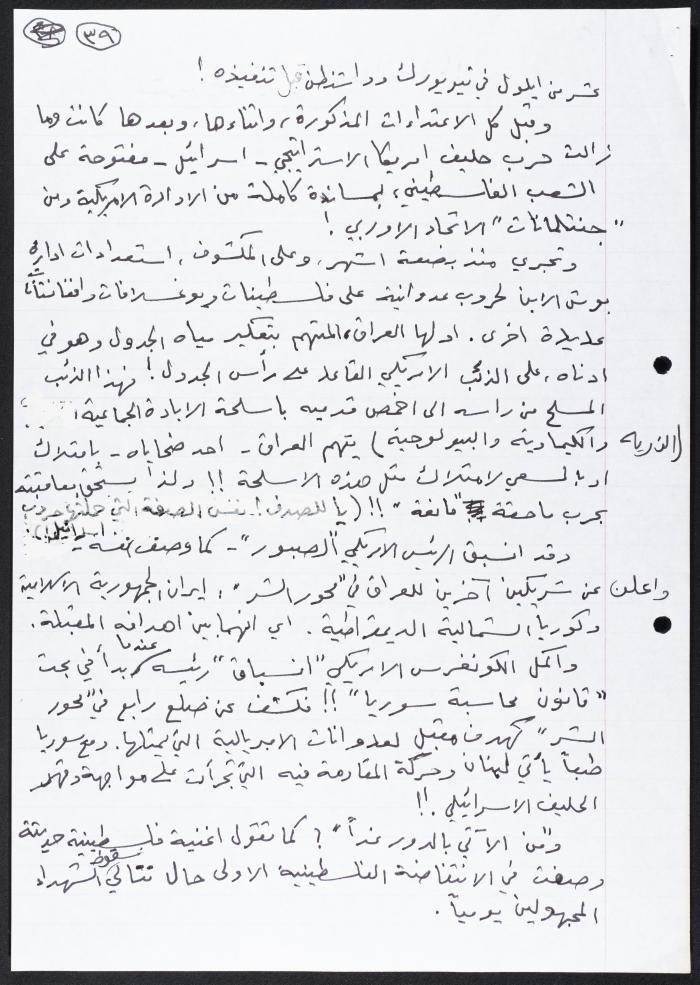 ٣٩
عشر من ايلول في نيويورك وواشنطن قبل تنفيذه !
وقبل كل الاعتداءات المذكورة، واثناءها، وبعدها كانت وما
زالت حرب حليف امريكا الاستراتيجي - اسرائيل - مفتوحة على
الشعب الفلسطيني، بمساندة كاملة من الادارة الامريكية ومن
"جنتلمانات" الاتحاد الاوربي !
وتجري منذ بضعة اشهر، وعلى المكشوف، استعدادات ادارة
بوش الابن لحروب عدوانية على فلسطينات ويوغسلافات وافغانستانات
عديدة اخرى. اولها العراق، المتهم بتعكير مياه الجدول وهو في
ادناه، على الذئب الامريكي القاعد على رأس الجدول ! فهذا الذئب
المسلح من راسه الى اخمص قدميه باسلحة الابادة الجماعية
(الذرية والكيمادية والبيولوجية) يتهم العراق - احد ضحاياه - بامتلاك
او بالسعي لامتلاك مثل هذه الاسلحة !! ولذا يستحق معاقبته
بحرب ماحقة "مانعة" !! (يا للصدف ! نفس الصفة التي حملتها حروب
اسرائيل !).
وقد انسبق الرئيس الامريكي "الصبور" - كما وصف نفسه -
واعلن عن شريكين آخرين للعراق في "محور الشر": ايران الجمهورية الاسلامية
وكوريا الشمالية الديمقراطية. اي انهما بين اهدافه المقبلة.
واكمل الكونغرس الامريكي "انسباق" رئيسه عندما بدأ في بحث
"قانون محاسبة سوريا" !! فكشف عن ضلع رابع في "محور
الشر" كهدف مقبل لعدوانات الامبريالية التي يمثلها. ومع سوريا
طبعاً يأتي لبنان وحركة المقاومة فيه التي تجرأت على مواجهة وقهر
الحليف الاسرائيلي !!
و"من الآتي بالدور غداً" ؟ كما تقول اغنية فلسطينية حديثة
وصفت في الانتفاضة الفلسطينية الاولى حال تتالي سقوط الشهداء
المجهولين يومياً.